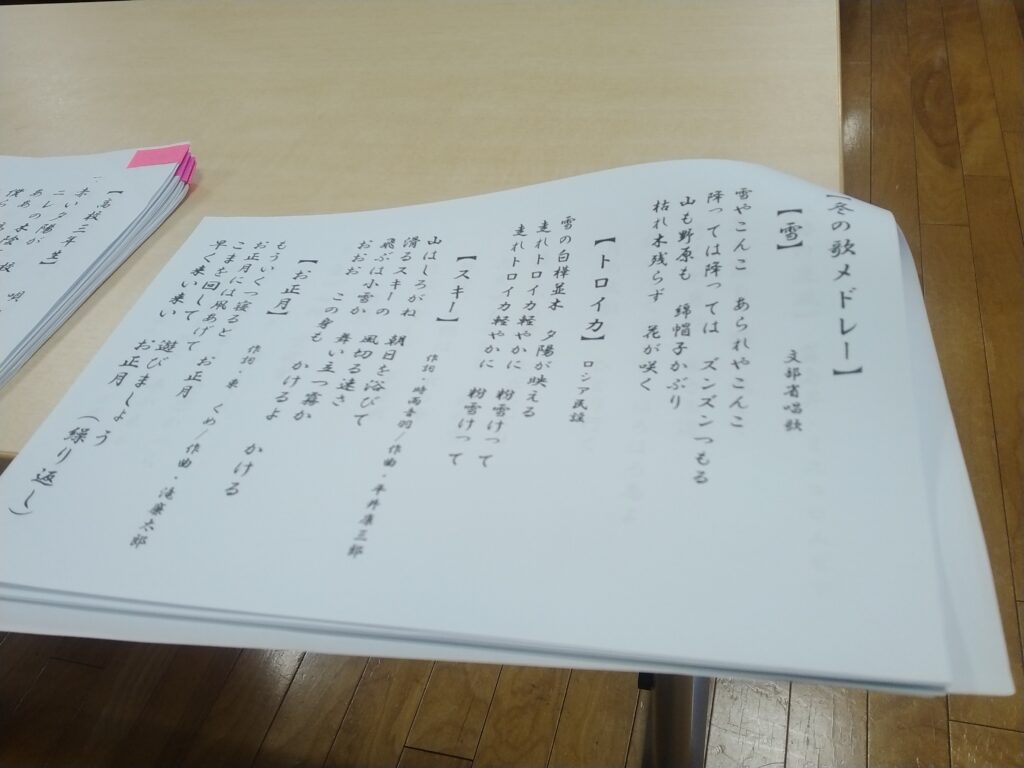 【冬の歌メドレー】
【雪】 文部省唱歌
雪やこんこ　あられやこんこ
降っては降っては　ズンズンつもる
山も野原も　綿帽子かぶり
枯れ木残らず　花が咲く
【トロイカ】 ロシア民謡
雪の白樺並木　夕陽が映える
走れトロイカ軽やかに　粉雪けって
走れトロイカ軽やかに　粉雪けって
【スキー】 作詞・時雨音羽／作曲・平井康三郎
山はしろがね　朝日を浴びて
滑るスキーの　風切る速さ
飛ぶは小雪か　舞い立つ霧か
おおお　この身も　かけるよ　かける
【お正月】 作詞・東 くめ／作曲・滝廉太郎
もういくつ寝ると　お正月
お正月には凧あげて
こまを回して　遊びましょう
早く来い来い　お正月　（繰り返し）
【高校三年生】
赤い夕陽が
ニレの木陰
ああ
僕ら